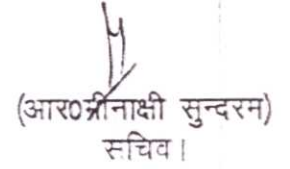 (आर0मीनाक्षी सुन्दरम)
सचिव।